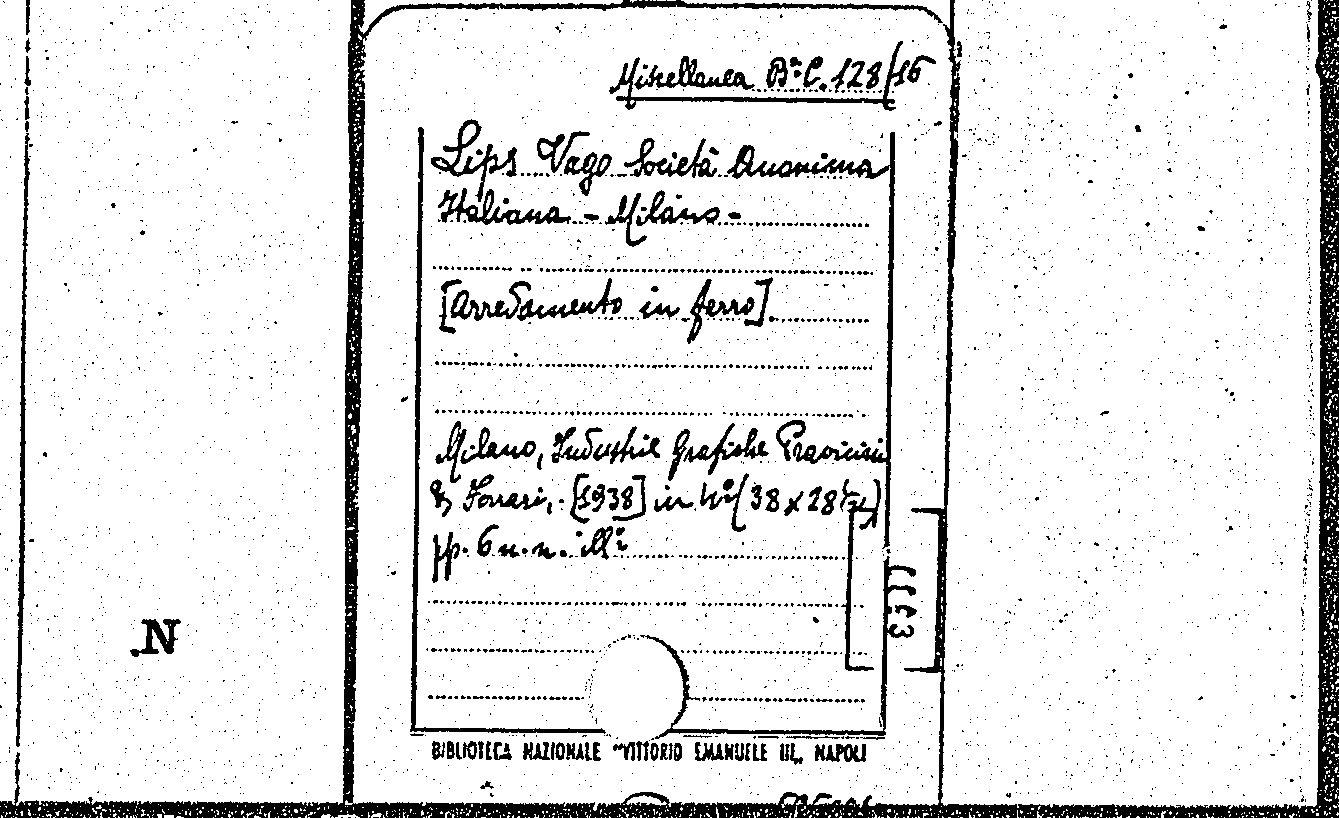 Miscellanea Bª C. 128/16
Lips Vago Società Anonima
Italiana - Milano -
[Arredamento in ferro].
Milano, Industrie Grafiche
& Ferrari, [1938] in 4º (38 x 28
pp. 6 n.n. illi
N.
BIBLIOTECA NAZIONALE "VITTORIO EMANUELE III„ NAPOLI